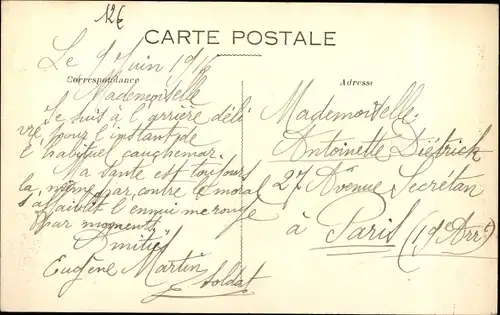 12€
CARTE POSTALE
Le 9 Juin 1916
Correspondance
Adresse
Mademoiselle
Je suis à l'arrière déli
vré, pour l'instant de
l'habituel cauchemar.
Ma santé est toujours
la même par contre le moral
s'affaiblit l'ennui me ronge
par moments
Amitiés
Eugène Martin
soldat
Mademoiselle
Antoinette Diétrich
27 Avenue Secrétan
à Paris (19e Arrt)